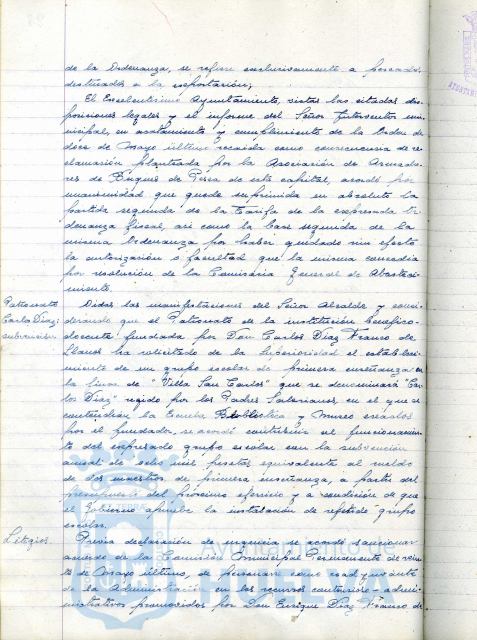 de la Ordenanza, se refiere exclusivamente a pescados
destinados a la exportación;
El Excelentísimo Ayuntamiento, vistas las citadas dis-
posiciones legales y el informe del Señor Interventor mu-
nicipal, en acatamiento y cumplimiento de la Orden de
doce de Mayo último recaída como consecuencia de re-
clamación planteada por la Asociación de Armado-
res de Buques de Pesca de esta capital, acordó por
unanimidad que quede suprimida en absoluto la
partida segunda de la Tarifa de la expresada Or-
denanza fiscal, así como la base segunda de la
misma Ordenanza por haber quedado sin efecto
la autorización o facultad que la misma concedía
por resolución de la Comisaría General de Abasteci-
miento.
Patronato
Carlos Díaz:
subvención.
Oídas las manifestaciones del Señor Alcalde y consi-
derando que el Patronato de la institución benéfico-
docente fundada por Don Carlos Díaz Franco de
Llanos ha solicitado de la Superioridad el estableci-
miento de un grupo escolar de primera enseñanza en
la finca de "Villa San Carlos" que se denominará "Car-
los Díaz" regido por los Padres Salesianos, en el que se
contendrían la Escuela Biblioteca y Museo creados
por el fundador, se acordó contribuir al funcionamien-
to del expresado grupo escolar con la subvención
anual de mil pesetas equivalente al sueldo
de dos maestros de primera enseñanza, a partir del
presupuesto del próximo ejercicio y a condición de que
el Gobierno apruebe la instalación de referido grupo
escolar.
Litigios.
Previa declaración de urgencia se acordó sancionar
acuerdo de la Comisión Municipal Permanente de vein-
te de Mayo último, de personarse como coadyuvante
de la Administración en los recursos contencioso-admi-
nistrativos promovidos por Don Enrique Díaz Franco de
Ayuntamiento de
HUELVA